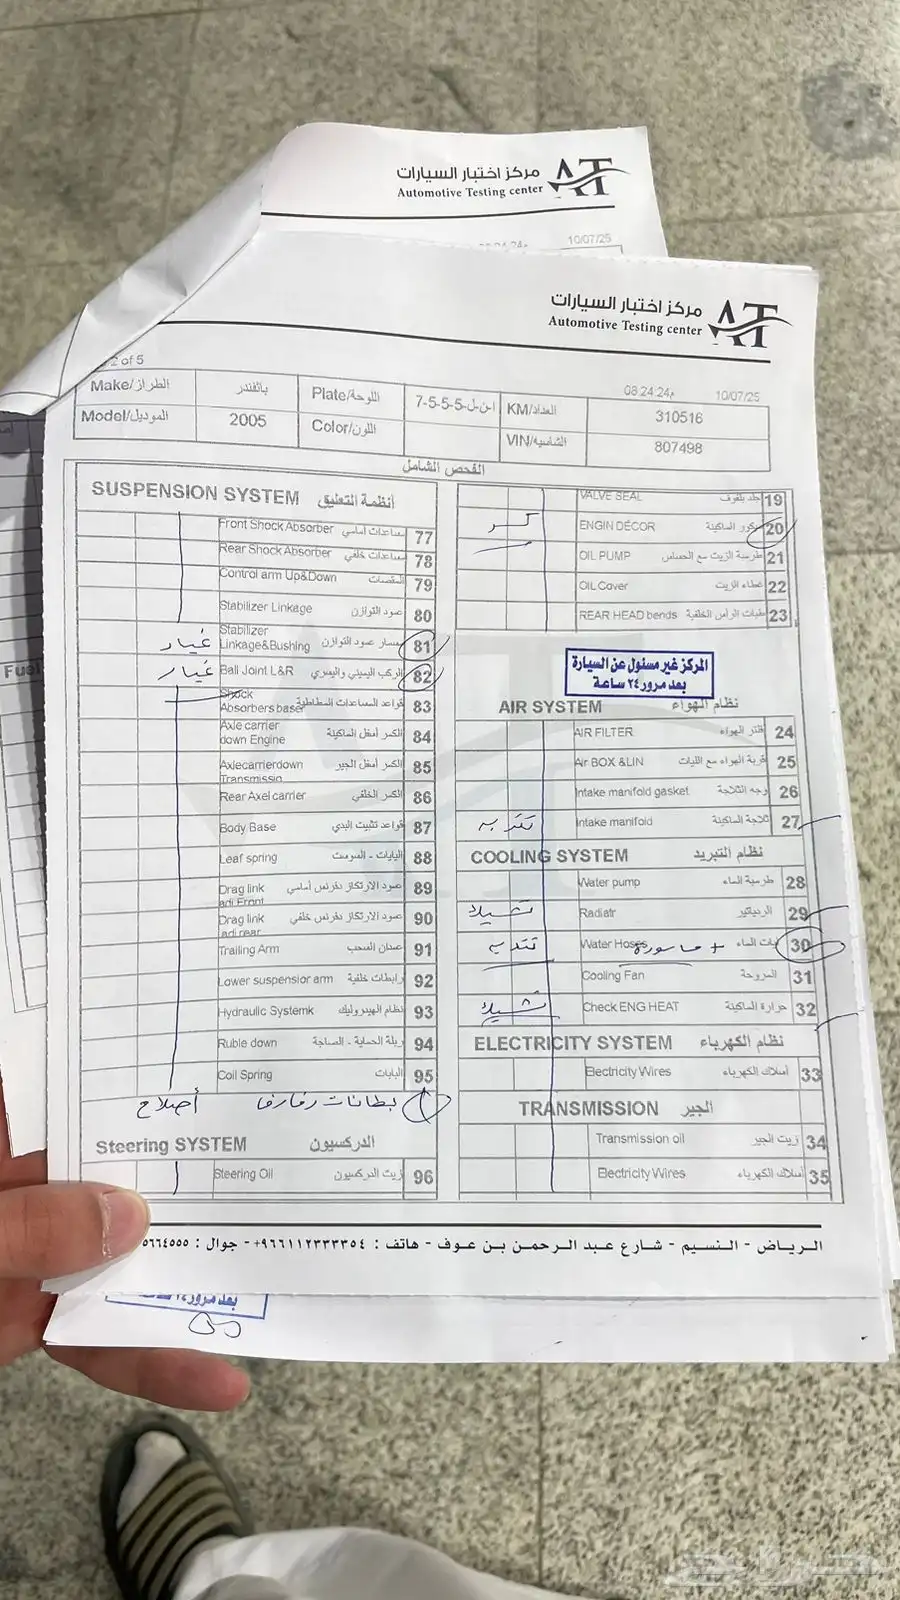 مركز اختبار السيارات
Automotive Testing center
10/07/25
مركز اختبار السيارات
Automotive Testing center
2 of 5
08:24:24م
10/07/25
Make/الطراز
باثفندر
Plate/اللوحة
ا-ن-ل-5-5-5-7
KM/العداد
310516
Model/الموديل
2005
Color/اللون
VIN/الشاسيه
807498
الفحص الشامل
SUSPENSION SYSTEM أنظمة التعليق
Front Shock Absorber مساعدات أمامي 77
Rear Shock Absorber مساعدات خلفي 78
Control arm Up&Down المقصات 79
Stabilizer Linkage عمود التوازن 80
غيار Stabilizer Linkage&Bushing مسمار عمود التوازن 81
غيار Ball Joint L&R الركب اليميني واليسري 82
Shock Absorbers base قواعد المساعدات المطاطية 83
Axle carrier down Engine الكسر أسفل الماكينة 84
Axlecarrierdown Transmissio الكسر أسفل الجير 85
Rear Axel carrier الكسر الخلفي 86
Body Base قواعد تثبيت البدي 87
Leaf spring اليايات - السوست 88
Drag link adj Front عمود الارتكاز دفرنس أمامي 89
Drag link adj rear عمود الارتكاز دفرنس خلفي 90
Trailing Arm عمدان السحب 91
Lower suspensior arm رابطات خلفية 92
Hydraulic Systemk نظام الهيدروليك 93
Ruble down ربلة الحماية - الصباجة 94
Coil Spring اليايات 95
بطانات رفارف أصلاح
Steering SYSTEM الدركسيون
Steering Oil زيت الدركسيون 96
VALVE SEAL جلد بلوف 19
ENGIN DÉCOR ديكور الماكينة 20
OIL PUMP طرمبة الزيت مع الحساس 21
OIL Cover غطاء الزيت 22
REAR HEAD bends طبات الرأس الخلفية 23
المركز غير مسئول عن السيارة
بعد مرور ٢٤ ساعة
AIR SYSTEM نظام الهواء
AIR FILTER فلتر الهواء 24
Air BOX &LIN قربة الهواء مع الليات 25
Intake manifold gasket وجه الثلاجة 26
Intake manifold ثلاجة الماكينة 27
COOLING SYSTEM نظام التبريد
Water pump طرمبة الماء 28
Radiatr الرديتر 29
Water Hoses ليات الماء 30 + ماسورة
Cooling Fan المروحة 31
Check ENG HEAT حرارة الماكينة 32
ELECTRICITY SYSTEM نظام الكهرباء
Electricity Wires أسلاك الكهرباء 33
TRANSMISSION الجير
Transmission oil زيت الجير 34
Electricity Wires أسلاك الكهرباء 35
الرياض - النسيم - شارع عبد الرحمن بن عوف - هاتف : ٩٦٦١١٢٣٣٣٣٥٤+ - جوال : ٥٦٦٤٥٥٥
Fuel